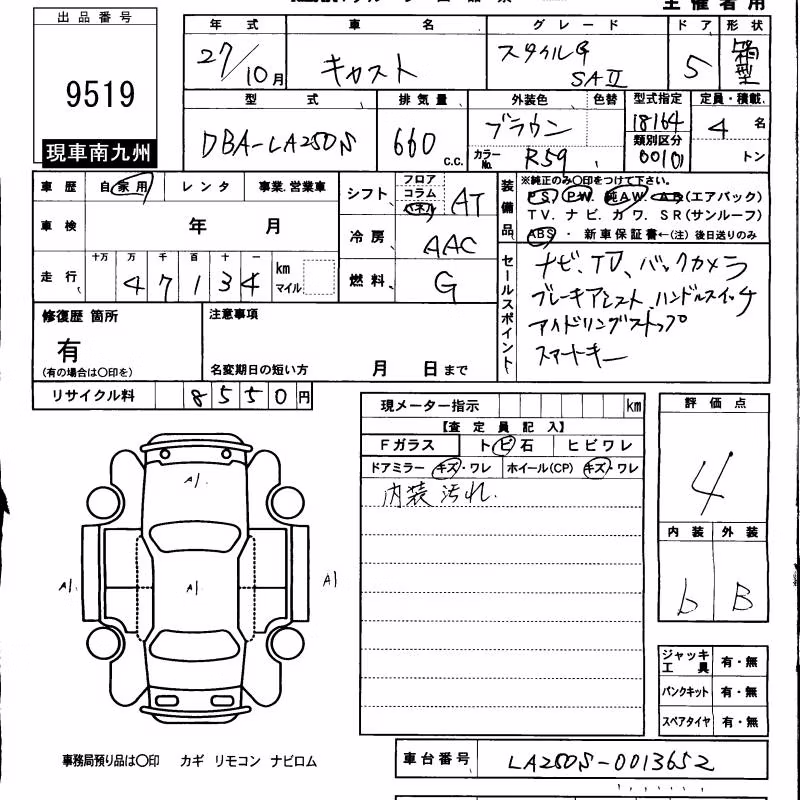 主催者用
出品番号
9519
現車南九州
年式 車名 グレード ドア 形状
27/10月 キャスト スタイルG SAⅡ 5 箱型
型式 排気量 外装色 色替 型式指定 定員・積載
DBA-LA250S 660 c.c. ブラウン 18164 4 名
カラーNo. R59 類別区分 00101 トン
車歴 自家用 レンタ 事業.営業車
車検 年 月
走行 十万 万 千 百 十 一
4 7 1 3 4 km マイル
シフト フロア コラム パネル AT
冷房 AAC
燃料 G
装備品
※純正のみ〇印をつけて下さい。
P.S. P.W. 純AW. A.B(エアバック)
TV. ナビ. カワ. SR(サンルーフ)
ABS ・ 新車保証書←(注) 後日送りのみ
セールスポイント
ナビ、TV、バックカメラ
ブレーキアシスト ハンドルスイッチ
アイドリングストップ
スマートキー
修復歴 箇所
有
(有の場合は〇印を)
注意事項
名変期日の短い方 月 日まで
リサイクル料 8550円
現メーター指示 km
【査定員記入】
Fガラス トビ石 ヒビワレ
ドアミラー キズ・ワレ ホイール(CP) キズ・ワレ
内装汚れ.
評価点
4
内装 外装
b B
ジャッキ工具 有・無
パンクキット 有・無
スペアタイヤ 有・無
A1.
A1. A1. A1
事務局預り品は〇印 カギ リモコン ナビロム
車台番号 LA250S-0013652